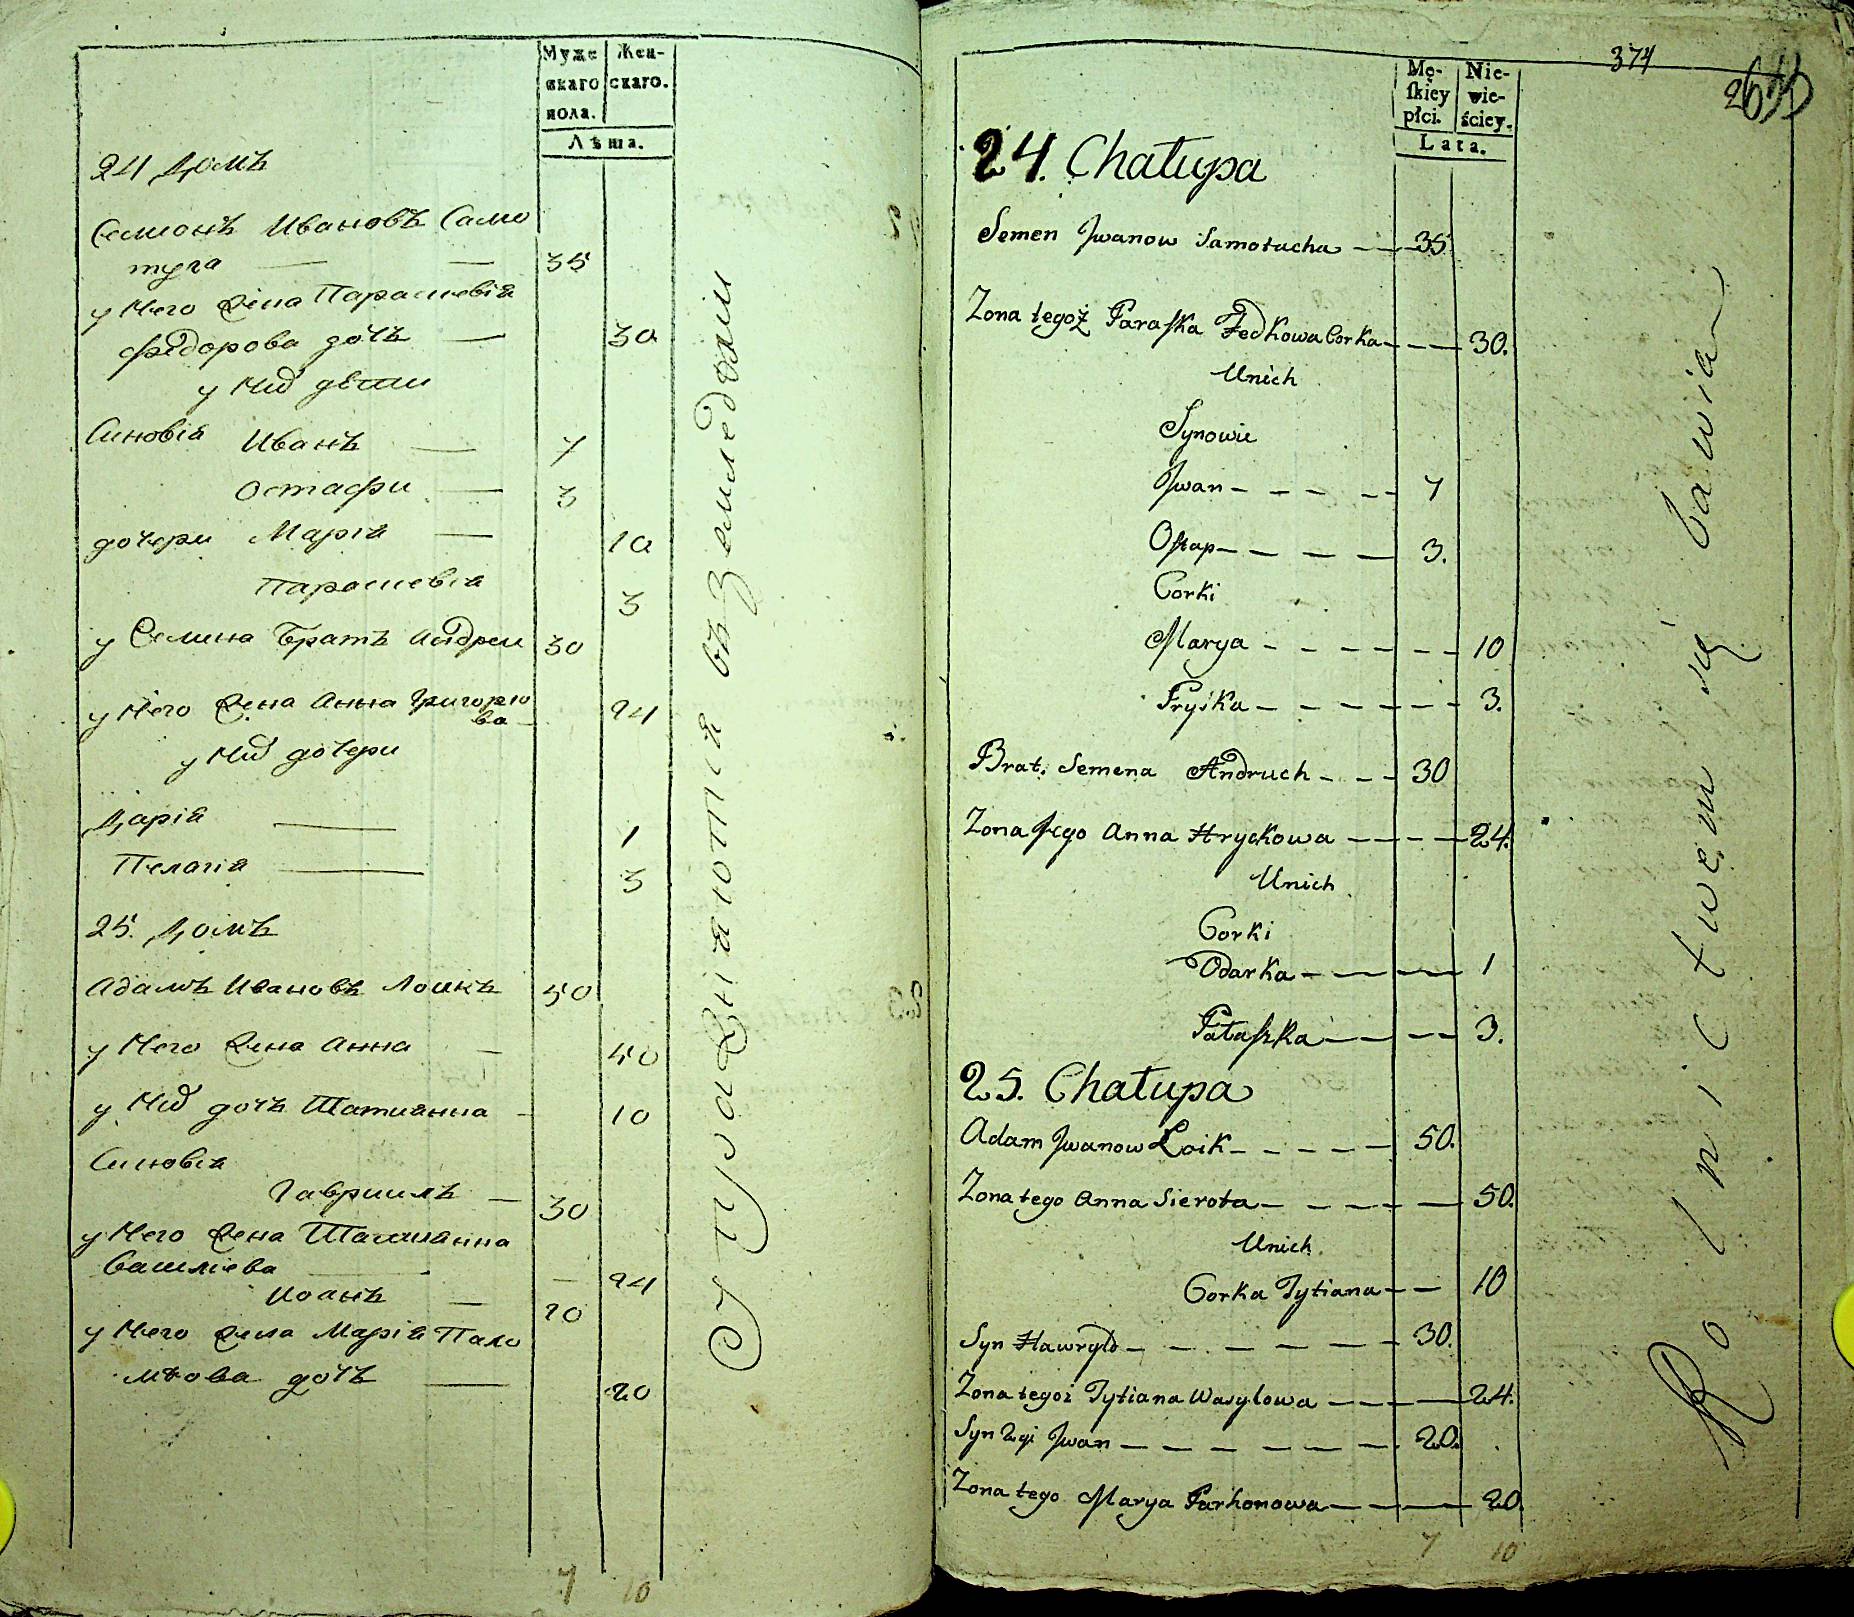 Муже
скаго
пола.
Жен-
скаго.
Лѣта.
24 Домъ
Семионъ Ивановъ Само
туга — — 35
у Него жена Парасневія
Федорова дочъ — 30
у Них дѣти
Синовія Иванъ — 7
Остафи — 3
дочери Марія — 10
Парасневія 3
у Семина Братъ Андреи 30
у Него жена Анна Григорю
ва — 24
у Них дочери
Дарія — 1
Пелагія — 3
25. Домъ
Адамъ Ивановъ Лоикъ 50
у Него жена Анна — 50
у Них дочъ Татианна - 10
Синовія
Гавриилъ — 30
у Него жена Татианна
Василіева — — 24
Иоанъ — 20
у Него жена Марія Пахо
мъова дочъ — 20
7 10
Упражняются въ Земледѣлии
374
Mę-
ſkiey
płci.
Nie-
wie-
ściey.
Lata.
24. Chałupa
Semen Jwanow Samotucha — — 35
Zona tegoż Paraſka Fedkowa Corka — — — 30.
Unich
Synowie
Jwan - - - - - 7
Oſtap - — — — 3.
Corki
Marya - - - - - - - 10
Pryśka - - - - - - 3.
Brat. Semena Andruch - - - 30
Zona Jego Anna Hryckowa — — - — 24.
Unich
Corki
Odarka - — — — 1
Pałaſzka — — - — 3.
25. Chałupa
Adam Jwanow Loik - - - - — 50.
Zona tego Anna Sierota — - - - - — 50.
Unich
Corka Tytiana - - — 10
Syn Hawryło - — — — — - 30.
Zona tegoż Tytiana Wasylowa — — - — 24.
Syn 2gi Jwan — — — — — — 20.
Zona tego Marya Parhomowa — — — 20.
7 10
Rolnictwem się bawią